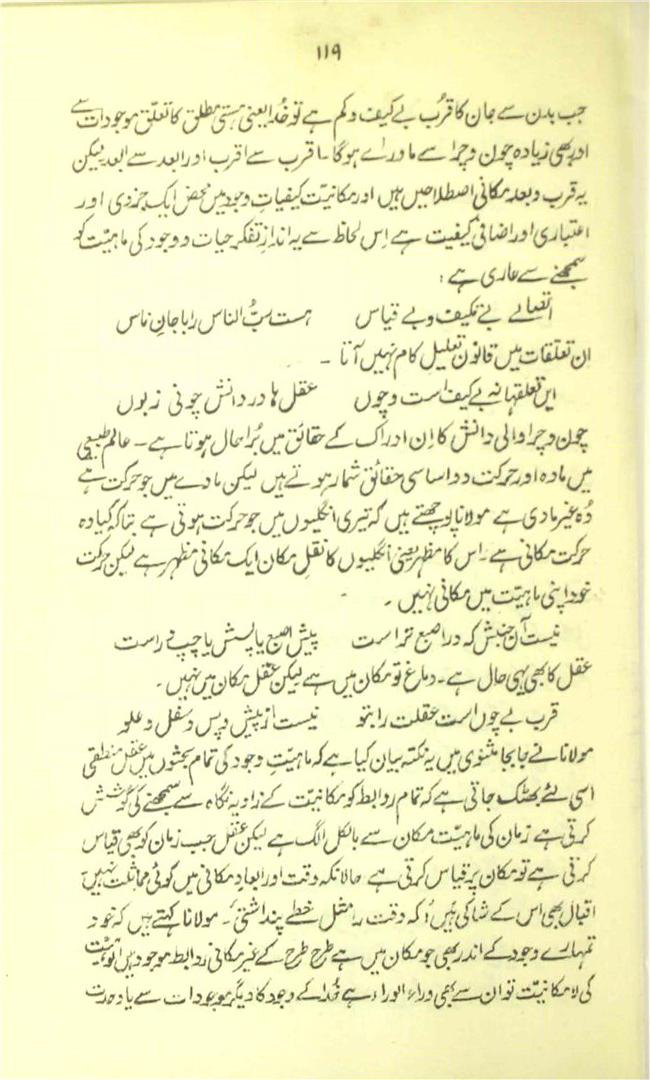 ۱۱۹
جب بدن سے جان کا قرُب بے کیف و کم ہے تو خُدا یعنی ہستیِ مطلق کا تعلّق موجودات سے
اور بھی زیادہ چون و چرا سے ماوراے ہوگا۔ اقرب سے اقرب اور ابعد سے ابعد لیکن
یہ قرب و بعد مکانی اصطلاحیں ہیں اور مکانیّت کیفیاتِ وجود میں محض ایک جزوی اور
اعتباری اور اضافی کیفیت ہے اِس لحاظ سے یہ اندازِ تفکر حیات و وجود کی ماہیّت کو
سمجھنے سے عاری ہے :
اتصالے بے تکیف و بے قیاس ہست ربُّ الناس را با جانِ ناس
ان تعلقات میں قانونِ تعلیل کام نہیں آتا ۔
ایں تعلقہا نہ بے کیف است و چوں عقل ہا در دانش چونی زبوں
چون و چرا والی دانش کا اِن ادراک کے حقائق میں بُرا حال ہوتا ہے۔ عالمِ طبیعی
میں مادہ اور حرکت دو اساسی حقائق شمار ہوتے ہیں لیکن مادے میں جو حرکت ہے
وُہ غیر مادی ہے مولانا پوچھتے ہیں کہ تیری انگلیوں میں جو حرکت ہوتی ہے بتا کہ کیا وہ
حرکت مکانی ہے۔ اس کا مظہر یعنی انگلیوں کا نقلِ مکان ایک مکانی مظہر ہے لیکن حرکت
خود اپنی ماہیّت میں مکانی نہیں ۔
نیست آن جنبش کہ در اصبع تراست پیش اصبع یا پسش یا چپ و راست
عقل کا بھی یہی حال ہے۔ دماغ تو مکان میں ہے لیکن عقل مکان میں نہیں ۔
قرب بے چوں است عقلت را بتو نیست از پیش و پس و سفل و علو
مولانا نے جا بجا مثنوی میں یہ نکتہ بیان کیا ہے کہ ماہیّتِ وجود کی تمام بحثوں میں عقل منطقی
اسی لئے بھٹک جاتی ہے کہ تمام روابط کو مکانیت کے زاویہ نگاہ سے سمجھنے کی کوشش
کرتی ہے زمان کی ماہیّت مکان سے بالکل الگ ہے لیکن عقل جب زمان کو بھی قیاس
کرتی ہے تو مکان پر قیاس کرتی ہے حالانکہ وقت اور ابعاد مکانی میں کوئی مماثلت نہیں
اقبال بھی اس کے شاکی ہیں کہ وقت را مثل خطے پنداشتی۔ مولانا کہتے ہیں کہ خود
تمہارے وجود کے اندر بھی جو مکان میں ہے طرح طرح کے غیر مکانی روابط موجود ہیں
کی لامکانیّت تو ان سے بھی وراء الوراء ہے خُدا کے وجود کا دیگر موجودات سے